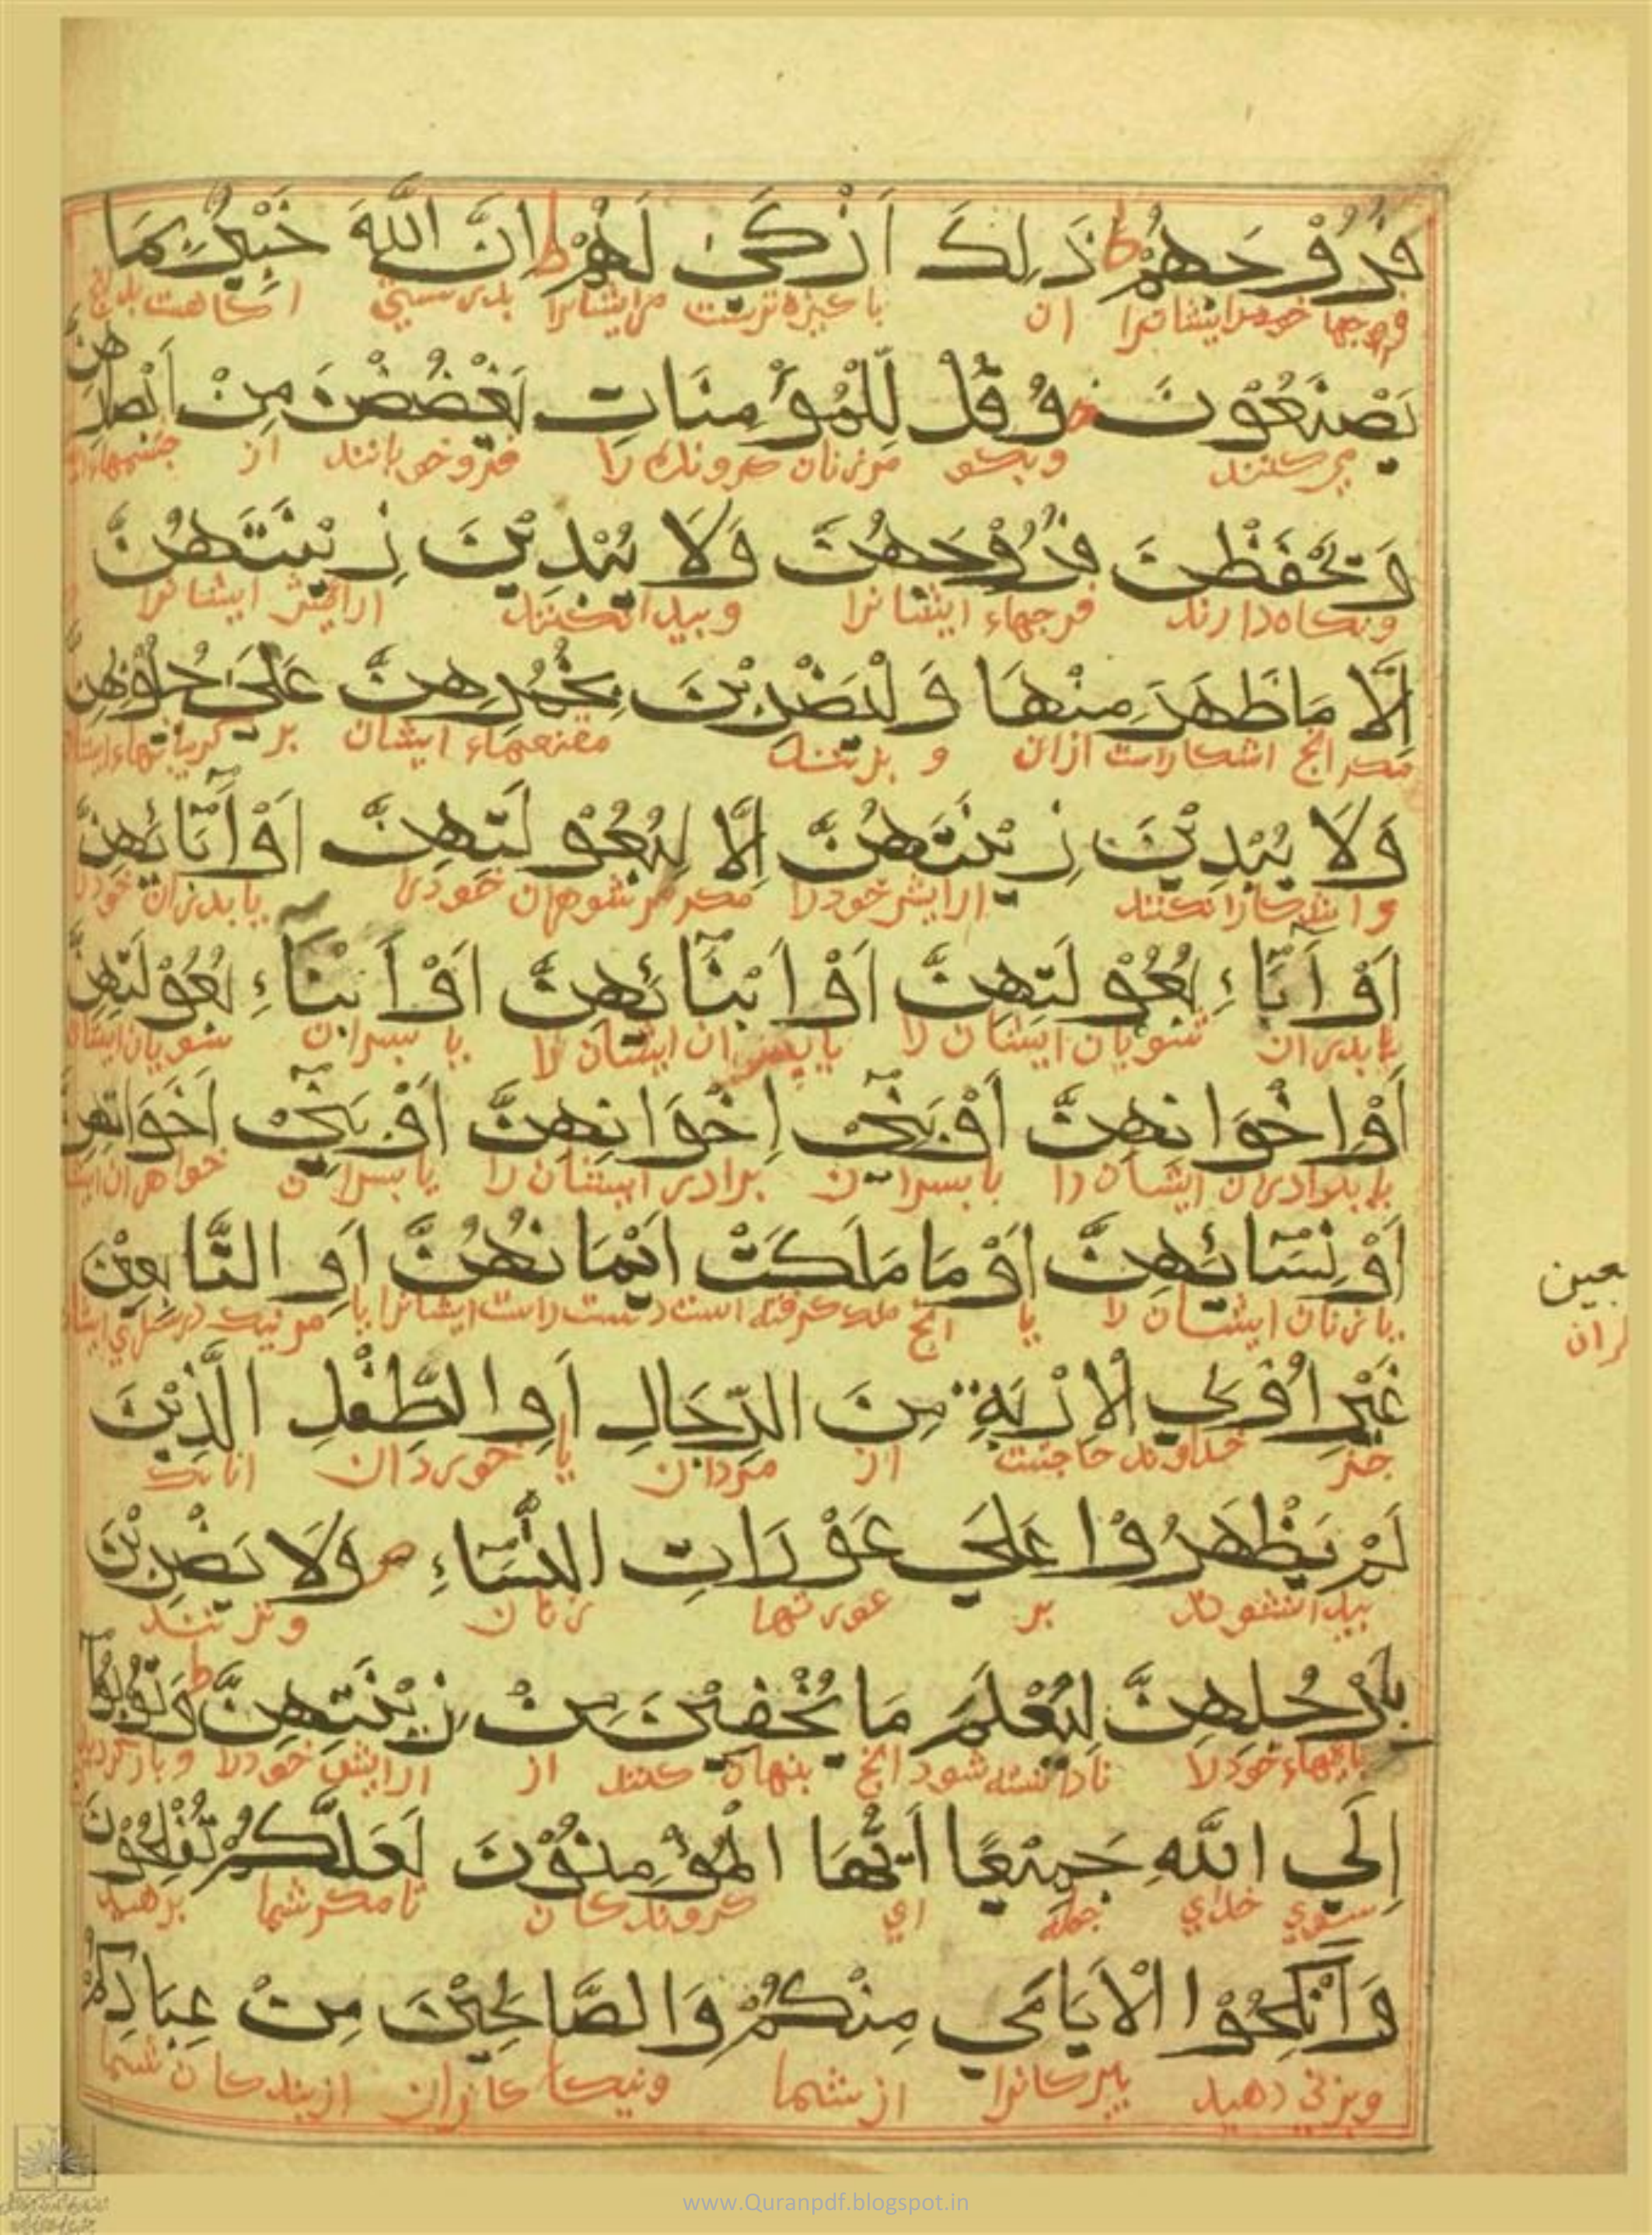 فُرُوْجَهُمْ ط ذَلِكَ اَزْكَىٰ لَهُمْ ط اِنَّ اللّٰهَ خَبِيْرٌ بِمَا
فرجها خود را ایشانرا ان باکیزه ترست مر ایشانرا بدرستی اکاهست
يَصْنَعُوْنَ وَقُلْ لِلْمُؤْمِنَاتِ يَغْضُضْنَ مِنْ اَبْصَارِهِنَّ
می کنند وبکو مر زنان کرونده را فرو خوبانند از جشمهاء
وَيَحْفَظْنَ فُرُوْجَهُنَّ وَلَا يُبْدِيْنَ زِيْنَتَهُنَّ
ونکاه دارند فرجهاء ایشانرا وبیدا نکنند ارایش ایشانرا
اِلَّا مَا ظَهَرَ مِنْهَا وَلْيَضْرِبْنَ بِخُمُرِهِنَّ عَلَىٰ جُيُوْبِهِنَّ
مکر انج اشکاراست ازان و بزنند مقنعهاء ایشان بر کریبانهاء
وَلَا يُبْدِيْنَ زِيْنَتَهُنَّ اِلَّا لِبُعُوْلَتِهِنَّ اَوْ اٰبَائِهِنَّ
و اشکارا نکنند ارایش خود را مکر مر شوهران خود را یا بدران خود را
اَوْ اٰبَاءِ بُعُوْلَتِهِنَّ اَوْ اَبْنَائِهِنَّ اَوْ اَبْنَاءِ بُعُوْلَتِهِنَّ
یا بدران شویان ایشان را یا پسران ایشان را یا بسران شویان ایشان
اَوْ اِخْوَانِهِنَّ اَوْ بَنِيْ اِخْوَانِهِنَّ اَوْ بَنِيْ اَخَوَاتِهِنَّ
یا برادران ایشان را یا بسران برادر ایشان را یا بسران خواهران
اَوْ نِسَائِهِنَّ اَوْ مَا مَلَكَتْ اَيْمَانُهُنَّ اَوِ التَّابِعِيْنَ
یا زنان ایشان را یا انج ملک کرفته است دست راست ایشانرا یا
عين
ران
غَيْرِ اُوْلِي الْاِرْبَةِ مِنَ الرِّجَالِ اَوِ الطِّفْلِ الَّذِيْنَ
جز خداوند حاجت از مردان یا خوردان انانک
لَمْ يَظْهَرُوْا عَلَي عَوْرَاتِ النِّسَاءِ ص وَلَا يَضْرِبْنَ
بیدا نشوند بر عورتها زنان ونزنند
بِاَرْجُلِهِنَّ لِيُعْلَمَ مَا يُخْفِيْنَ مِنْ زِيْنَتِهِنَّ ط وَتُوْبُوْا
بایهاء خود را تا دانسته شود انج بنهان کنند از ارایش خود را و باز کردید
اِلَي اللّٰهِ جَمِيْعًا اَيُّهَا الْمُؤْمِنُوْنَ لَعَلَّكُمْ تُفْلِحُوْنَ
سوی خدای جمله ای کروندکان تا مکر شما برهید
وَاَنْكِحُوْا الْاَيَامَي مِنْكُمْ وَالصَّالِحِيْنَ مِنْ عِبَادِكُمْ
وبزنی دهید از شما ونیکا کانران از بندکان شما
www.Quranpdf.blogspot.in